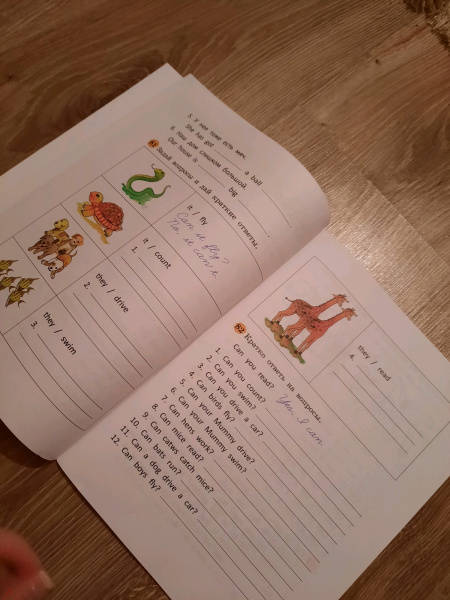 5. У неё тоже есть мяч.
She has got ______ a ball ______.
6. Наш дом слишком большой.
Our house is ______ big ______.
51 Задай вопросы и дай краткие ответы.
it / fly
Can it fly?
No, it can't.
it / count
1.
they / drive
2.
they / swim
3.
they / read
4.
52 Кратко ответь на вопросы.
Can you read? Yes, I can.
1. Can you count?
2. Can you swim?
3. Can you drive a car?
4. Can birds fly?
5. Can your Mummy drive?
6. Can your Mummy swim?
7. Can hens work?
8. Can mice read?
9. Can catws catch mice?
10. Can bats run?
11. Can a dog drive a car?
12. Can boys fly?